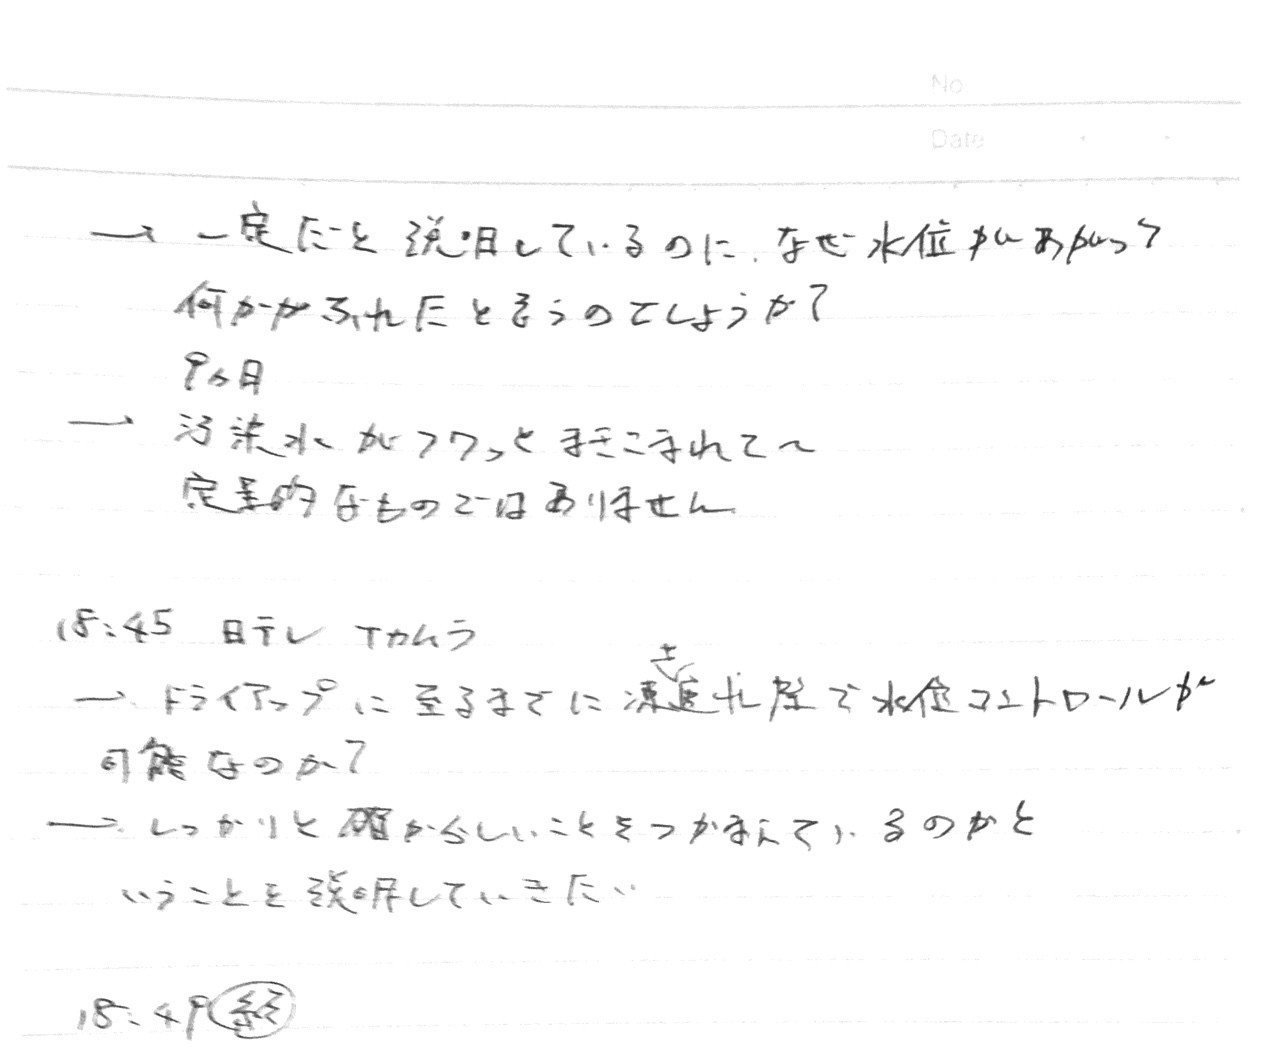 No
Date
→ 一定だと説明しているのに、なぜ水位があがって
何かがふれたと言うのでしょうか?
9ヶ月
→ 汚染水がフワっとまきこまれて〜
定量的なものではありません
18:45 日テレ Tカムラ
→ ドライアップに至るまでに凍土壁で水位コントロールが
可能なのか?
→ しっかりと確からしいことをつかまえているのかと
いうことを説明していきたい
18:49 終